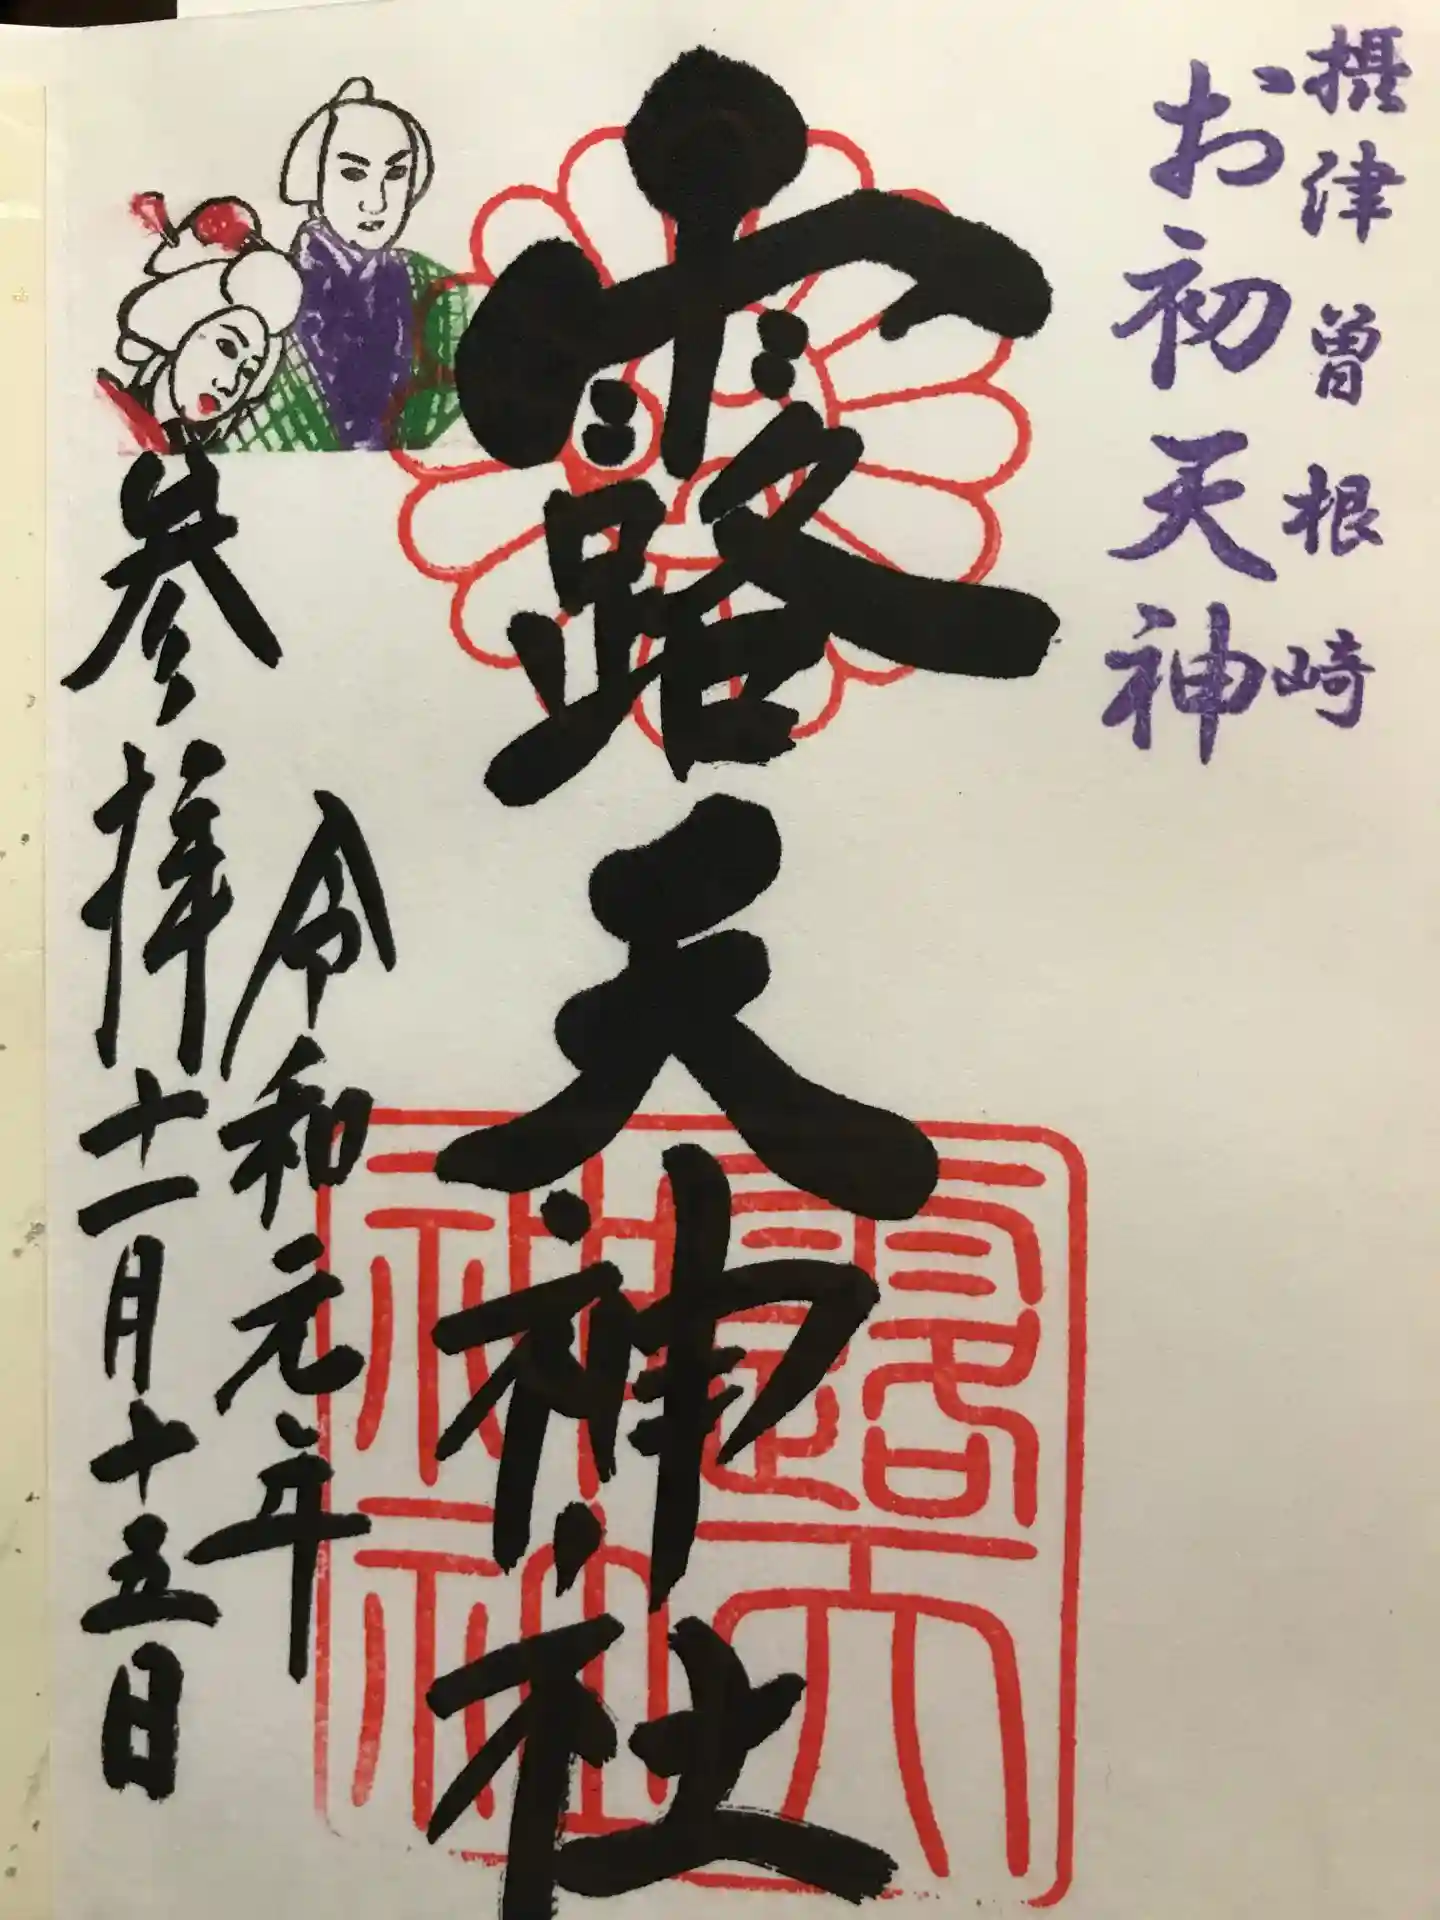 摂津曽根崎
お初天神
露天神社
露天
神社
令和元年
参拝十一月十五日